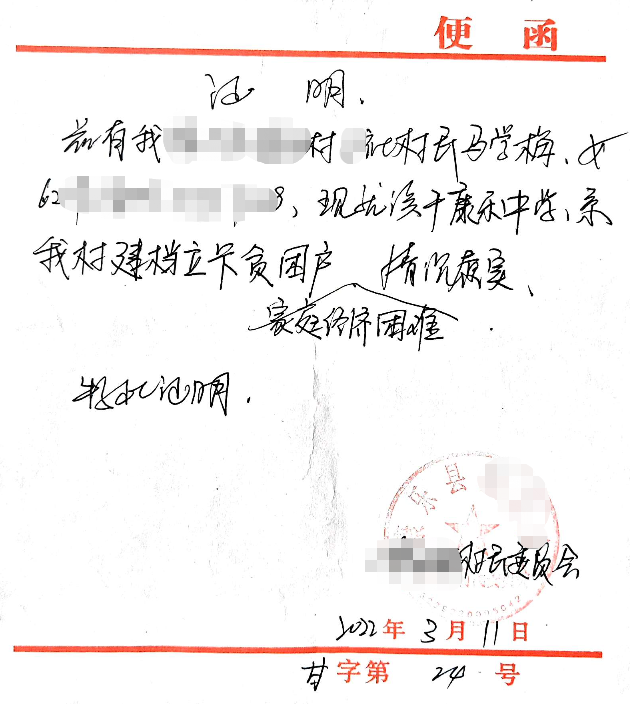 便函
证 明.
兹有我 村 社村民马学梅、女
62 3、现就读于康乐中学、系
我村建档立卡贫困户 情况属实、
家庭经济困难
特此证明.
乐县
村民委员会
2022年3月11日
甘字第 24 号